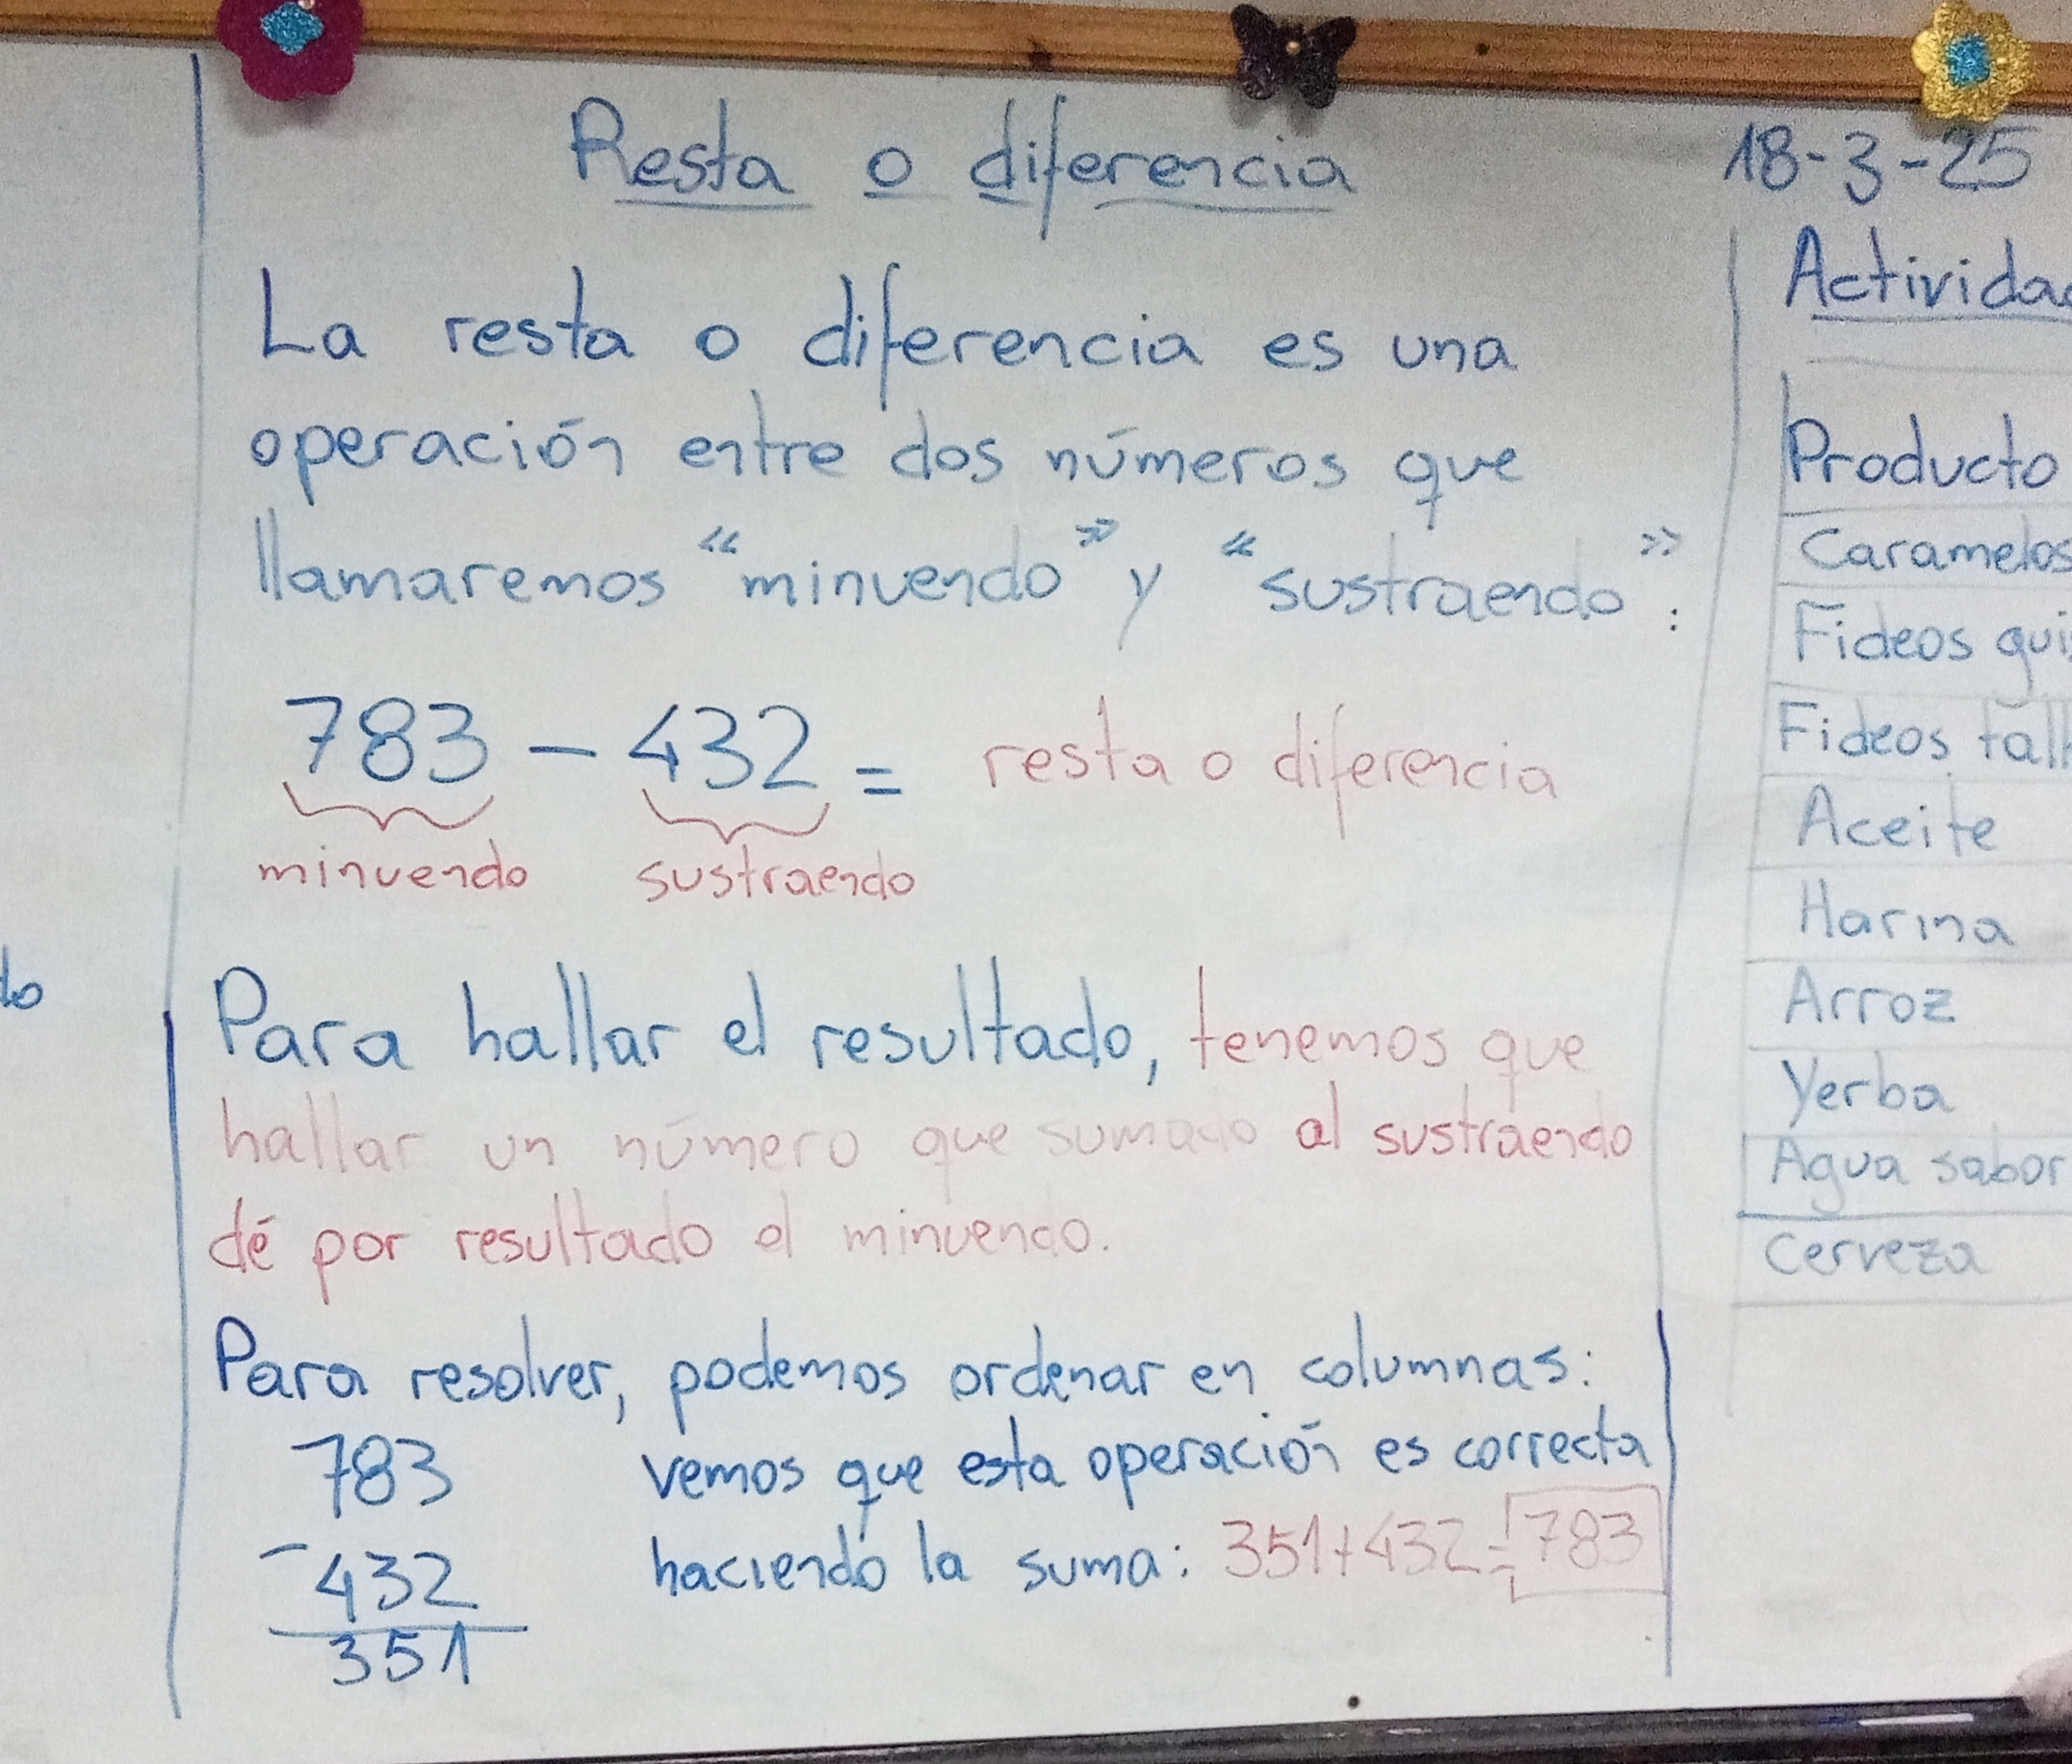 Resta o diferencia
La resta o diferencia es una
operación entre dos números que
llamaremos "minuendo" y "sustraendo":
783 - 432 = resta o diferencia
minuendo sustraendo
Para hallar el resultado, tenemos que
hallar un número que sumado al sustraendo
dé por resultado el minuendo.
Para resolver, podemos ordenar en columnas:
783
- 432
351
vemos que esta operación es correcta
haciendo la suma: 351+432=783
18-3-25
Activida
Producto
Caramelos
Fideos gui
Fideos tall
Aceite
Harina
Arroz
Yerba
Agua sabor
Cerveza